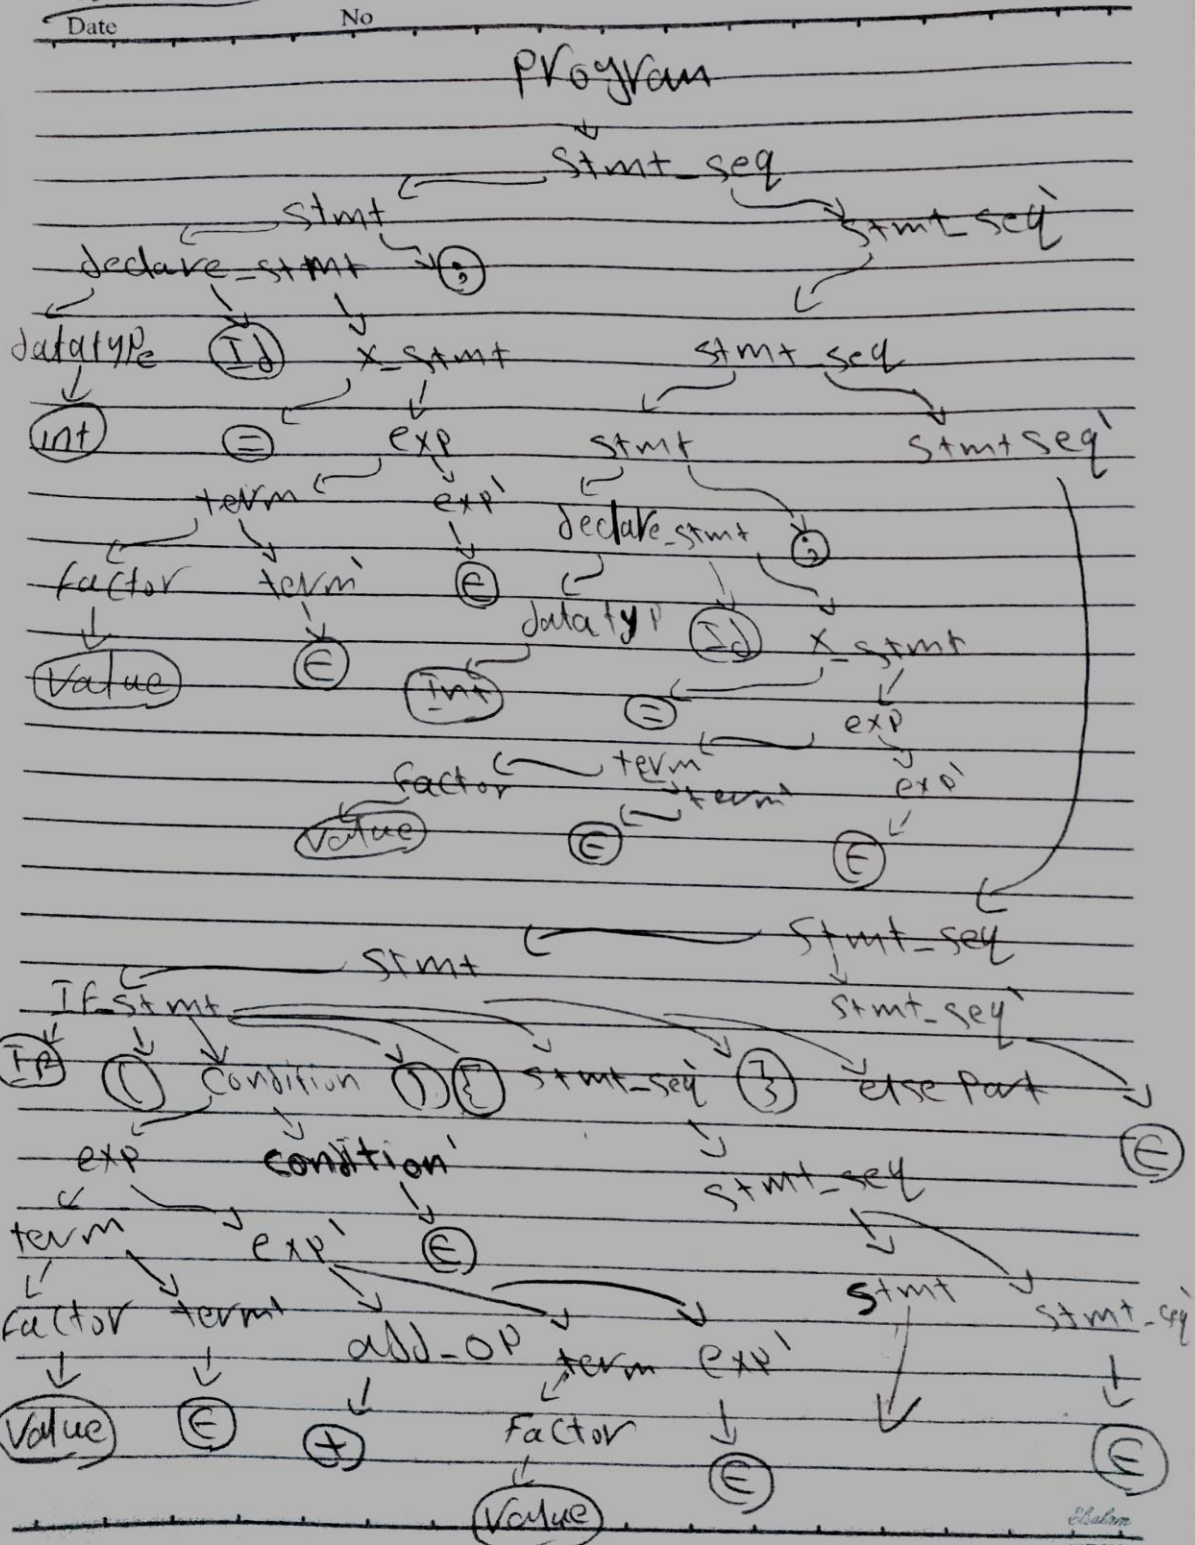 Date No
program
stmt_seq
stmt stmt_seq`
declare_stmt ;
datatype Id x_stmt stmt_seq
int = exp stmt stmt seq`
term exp` declare_stmt ;
factor term` ϵ
datatyp Id x_stmt
Value ϵ Int = exp
factor term exp`
term`
Value ϵ ϵ
stmt_seq
stmt
If_stmt stmt_seq`
If ( Condition ) { stmt_seq` } else Part
exp condition` stmt_seq ϵ
term exp` ϵ
factor term` stmt stmt_seq`
add_op term exp`
Value ϵ + Factor ϵ ϵ
Value
Elsalam